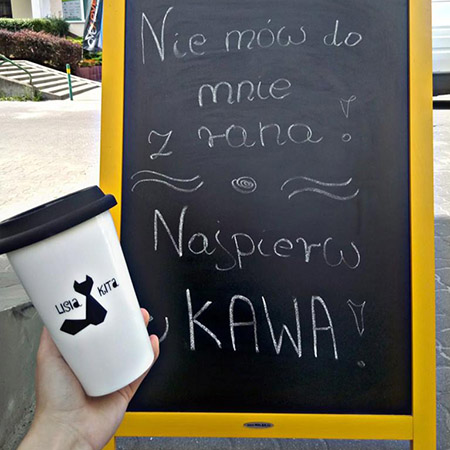 Nie mów do
mnie
z rana!
Najpierw
KAWA!
LISIA
KITA